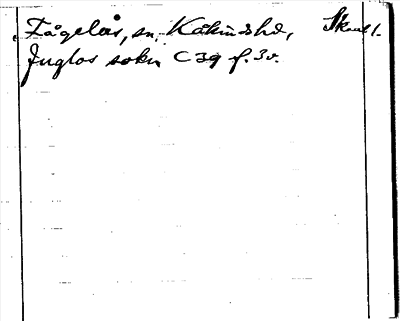 Fågelås, sn, Kåkindshd, Skarabl.
Fuglos sokn C 39 f. 3v.